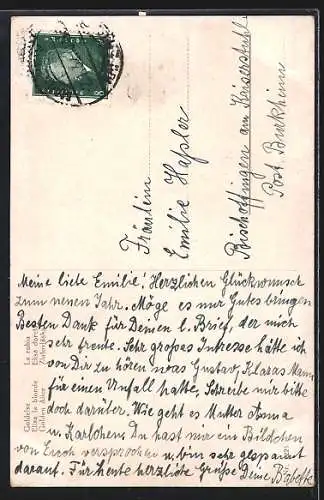 Fräulein
Emilie Haßler
Bischoffingen am Kaiserstuhl
Post Burkheim
Meine liebe Emilie! Herzlichen Glückwunsch
zum neuen Jahr. Möge es nur Gutes bringen
Besten Dank für Deinen l. Brief, der mich
sehr freute. Sehr großes Intresse hätte ich
von Dir zu hören was Gustav, Klaras Mann,
für einen Unfall hatte. Schreibe mir bitte
doch darüber. Wie geht es Mutter Anna
u. Karlchen. Du hast mir ein Bildchen
von Euch versprochen u. bin sehr gespannt
darauf. Für heute herzliche Grüße Deine